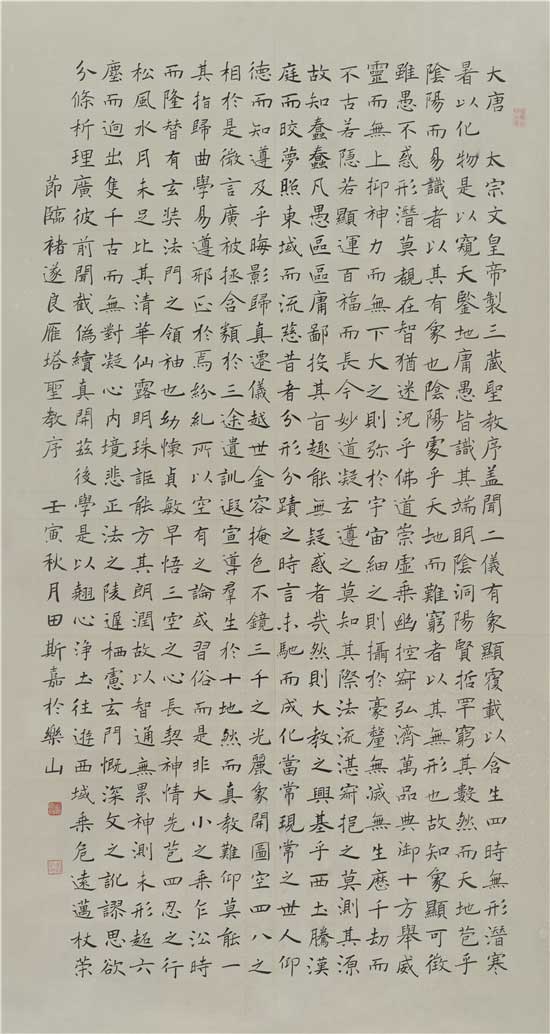 大唐 太宗文皇帝製三藏聖教序盖聞二儀有象顯覆載以含生四時無形潛寒
暑以化物是以窺天鑒地庸愚皆識其端明陰洞陽賢哲罕窮其數然而天地苞乎
陰陽而易識者以其有象也陰陽處乎天地而難窮者以其無形也故知象顯可徵
雖愚不惑形潛莫覩在智猶迷況乎佛道崇虛乘幽控寂弘濟萬品典御十方舉威
靈而無上抑神力而無下大之則弥於宇宙細之則攝於豪釐無滅無生歷千劫而
不古若隱若顯運百福而長今妙道凝玄遵之莫知其際法流湛寂挹之莫測其源
故知蠢蠢凡愚區區庸鄙投其旨趣能無疑惑者哉然則大教之興基乎西土騰漢
庭而皎夢照東域而流慈昔者分形分蹟之時言未馳而成化當常現常之世人仰
德而知遵及乎晦影歸真遷儀越世金容掩色不鏡三千之光麗象開圖空四八之
相於是微言廣被拯含類於三途遺訓遐宣導羣生於十地然而真教難仰莫能一
其指歸曲學易遵邪正於焉紛糺所以空有之論或習俗而是非大小之乘乍沿時
而隆替有玄奘法門之領袖也幼懷貞敏早悟三空之心長契神情先苞四忍之行
松風水月未足比其清華仙露明珠詎能方其朗潤故以智通無累神測未形超六
塵而迥出隻千古而無對凝心內境悲正法之陵遲栖慮玄門慨深文之訛謬思欲
分條析理廣彼前聞截偽續真開茲後學是以翹心淨土往遊西域乘危遠邁杖策
節臨褚遂良雁塔聖教序 壬寅秋月田斯嘉於樂山